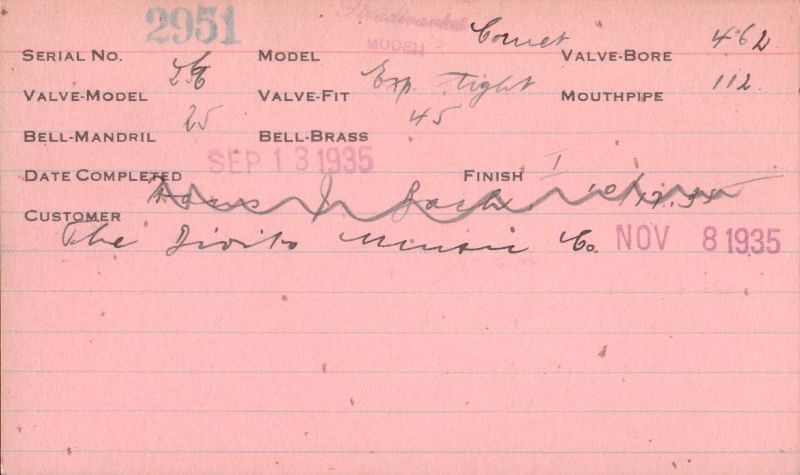 SERIAL NO. 2951 MODEL Stradivarius MODEL Cornet VALVE-BORE 462
VALVE-MODEL VALVE-FIT Exp. Tight MOUTHPIPE 112
BELL-MANDRIL 25 BELL-BRASS 45
DATE COMPLETED SEP 13 1935 FINISH I
CUSTOMER J. Bach. 10/17.35
The Music Co. NOV 8 1935